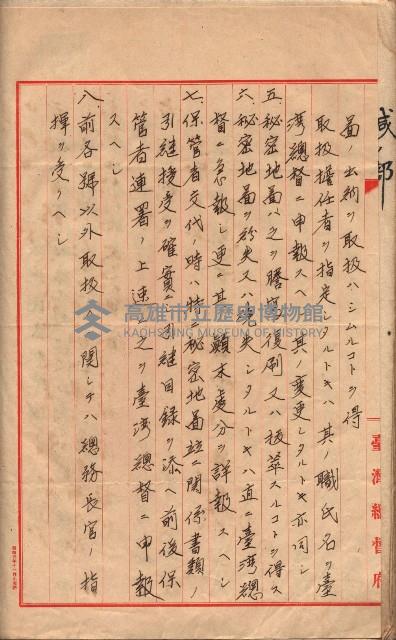 圖ノ出納ヲ取扱ハシムルコトヲ得
取扱擔任者ヲ指定シタルトキハ其ノ職氏名ヲ臺
灣總督ニ申報スヘシ其ノ變更シタルトキ亦同シ
五、秘密地圖ハ之ヲ謄寫復刷又ハ拔萃スルコトヲ得ス
六、秘密地圖ヲ紛失又ハ亡失シタルトキハ直ニ臺灣總
督ニ急報シ更ニ其ノ顚末處分ヲ詳報スヘシ
七、保管者交代ノ時ハ特ニ秘密地圖並ニ關係書類ノ
引繼授受ヲ確實ニシ引繼目録ヲ添ヘ前後保
管者連署ノ上速ニ之ヲ臺灣總督ニ申報
スヘシ
八、前各號以外取扱ニ關シテハ總務長官ノ指
揮ヲ受クヘシ
臺灣總督府
高雄市立歷史博物館
KAOHSIUNG MUSEUM OF HISTORY